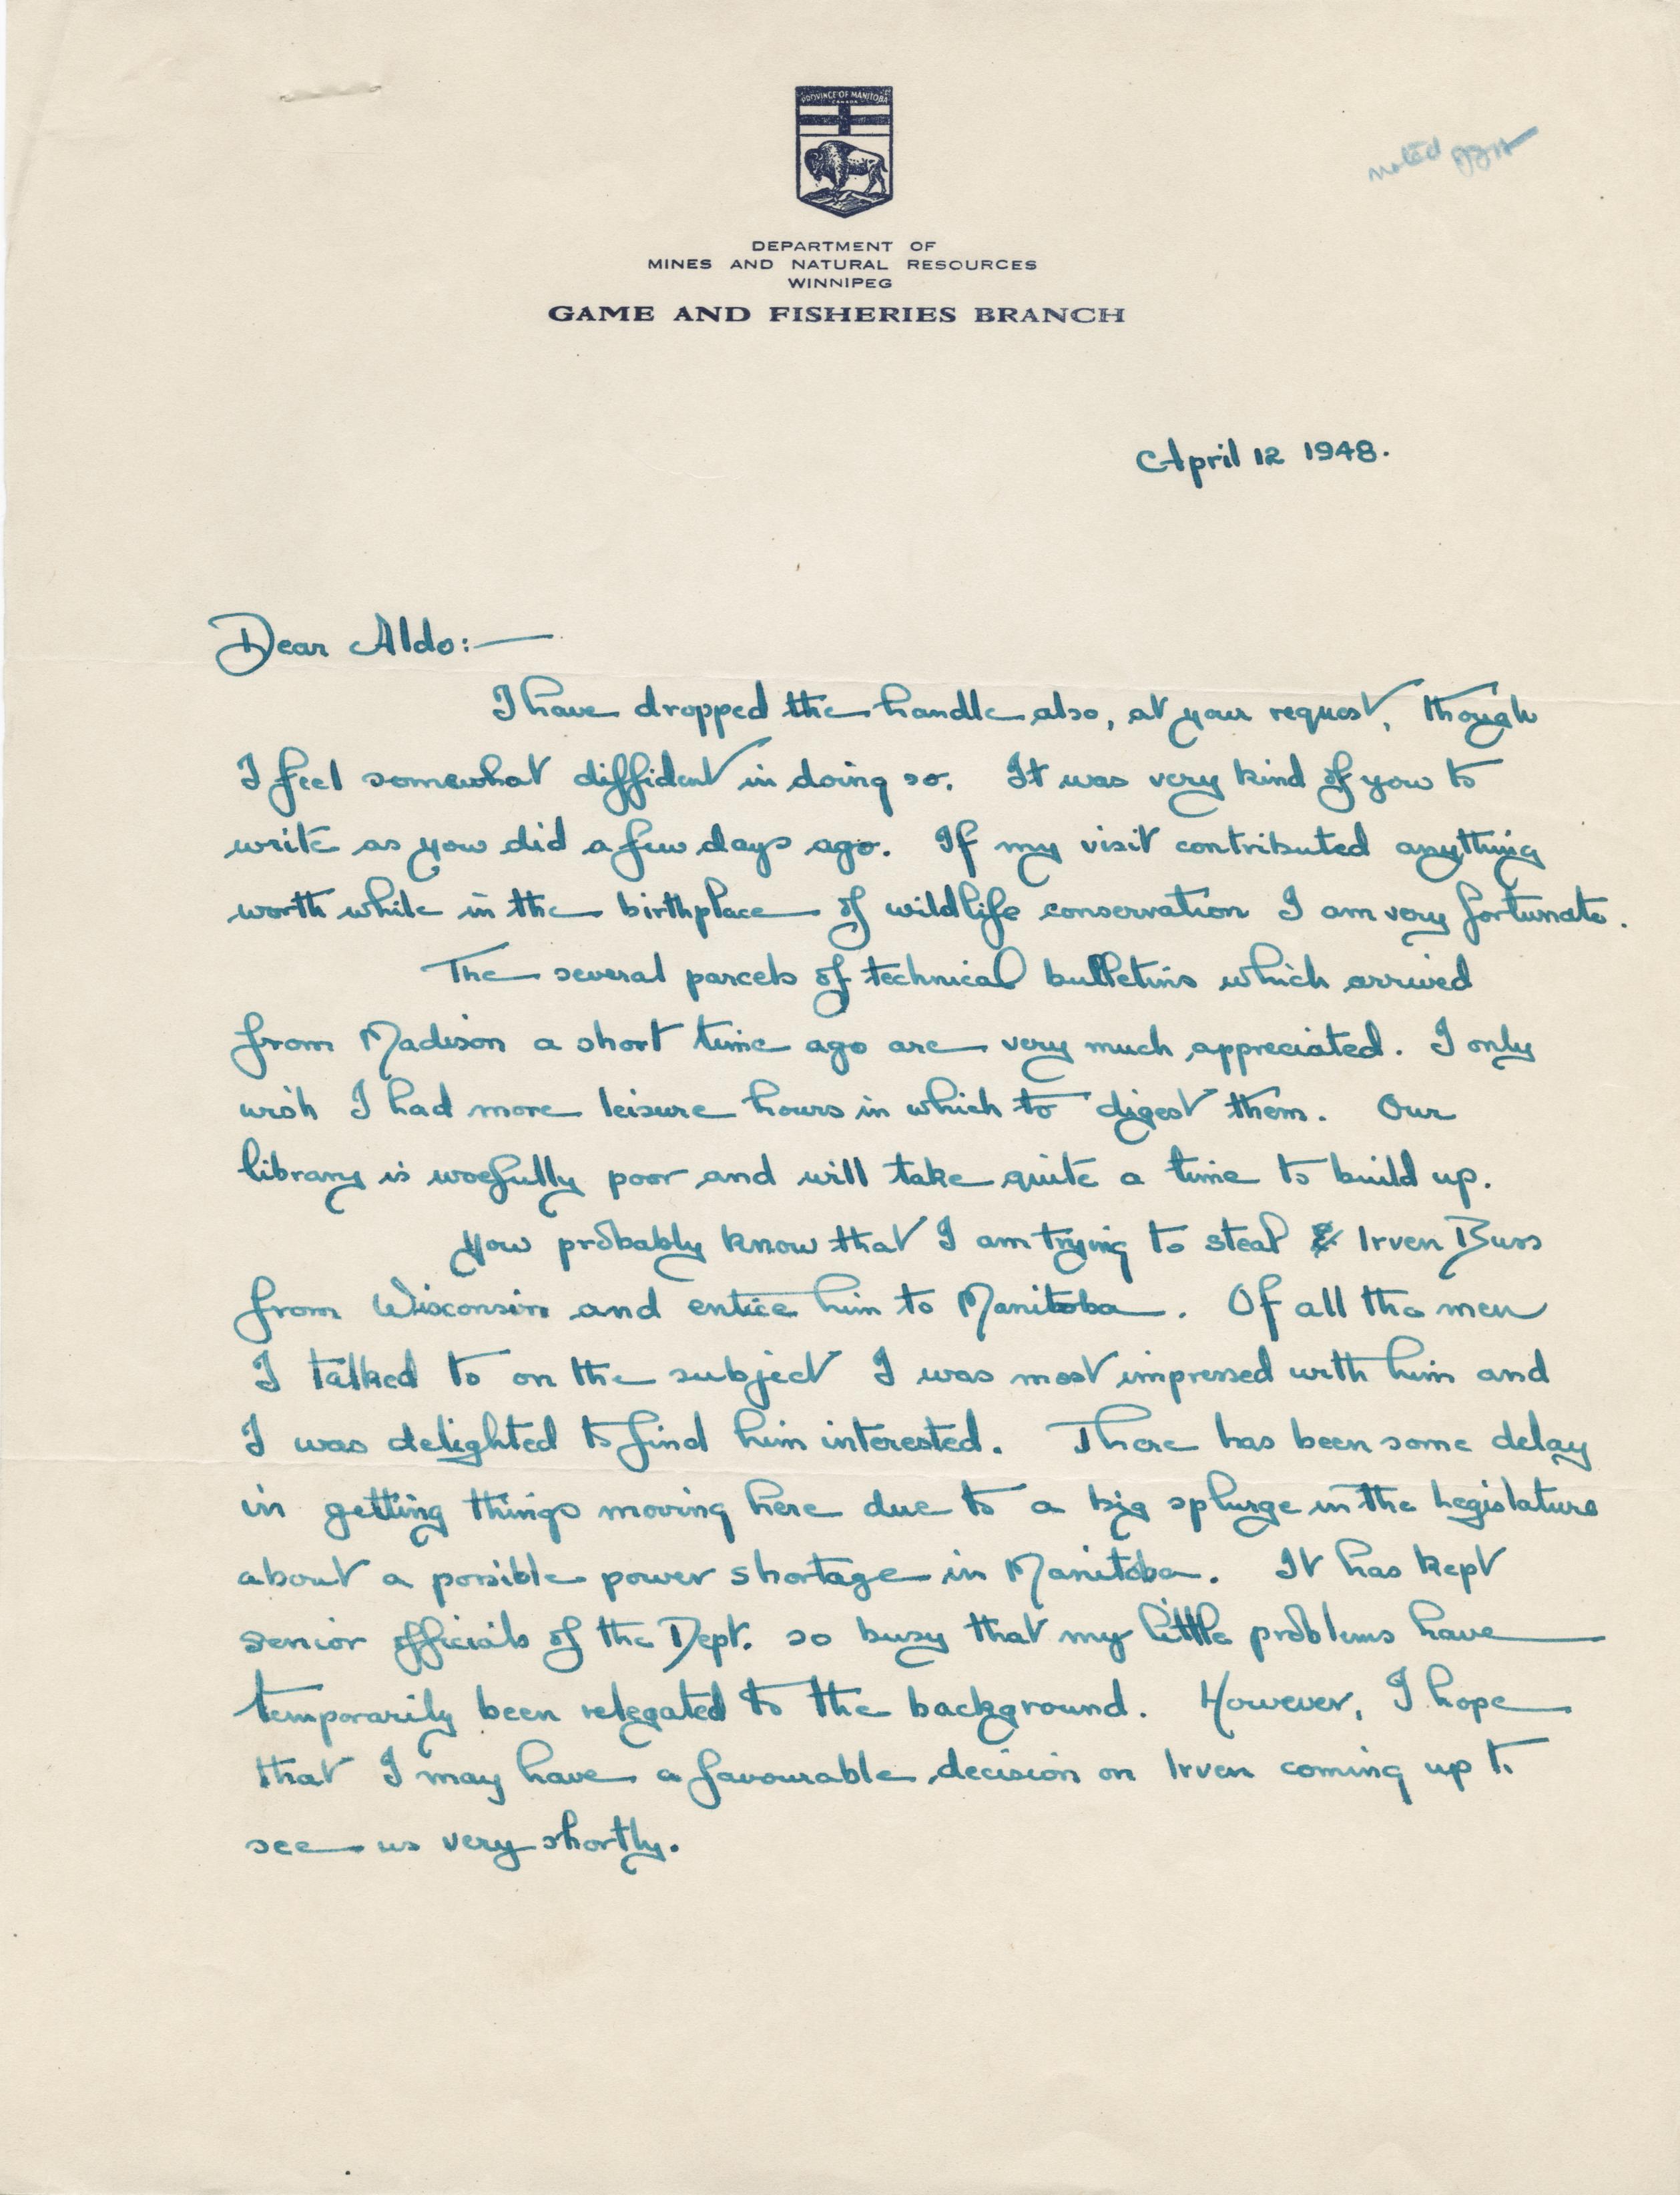 PROVINCE OF MANITOBA
CANADA
noted
DEPARTMENT OF
MINES AND NATURAL RESOURCES
WINNIPEG
GAME AND FISHERIES BRANCH
April 12 1948.
Dear Aldo:—
I have dropped the handle also, at your request, though
I feel somewhat diffident in doing so. It was very kind of you to
write as you did a few days ago. If my visit contributed anything
worth while in the birthplace of wildlife conservation I am very fortunate.
The several parcels of technical bulletins which arrived
from Madison a short time ago are very much appreciated. I only
wish I had more leisure hours in which to digest them. Our
library is woefully poor and will take quite a time to build up.
You probably know that I am trying to steal Irven Buss
from Wisconsin and entice him to Manitoba. Of all the men
I talked to on the subject I was most impressed with him and
I was delighted to find him interested. There has been some delay
in getting things moving here due to a big splurge in the Legislature
about a possible power shortage in Manitoba. It has kept
senior officials of the Dept. so busy that my little problems have
temporarily been relegated to the background. However, I hope
that I may have a favourable decision on Irven coming up to
see us very shortly.